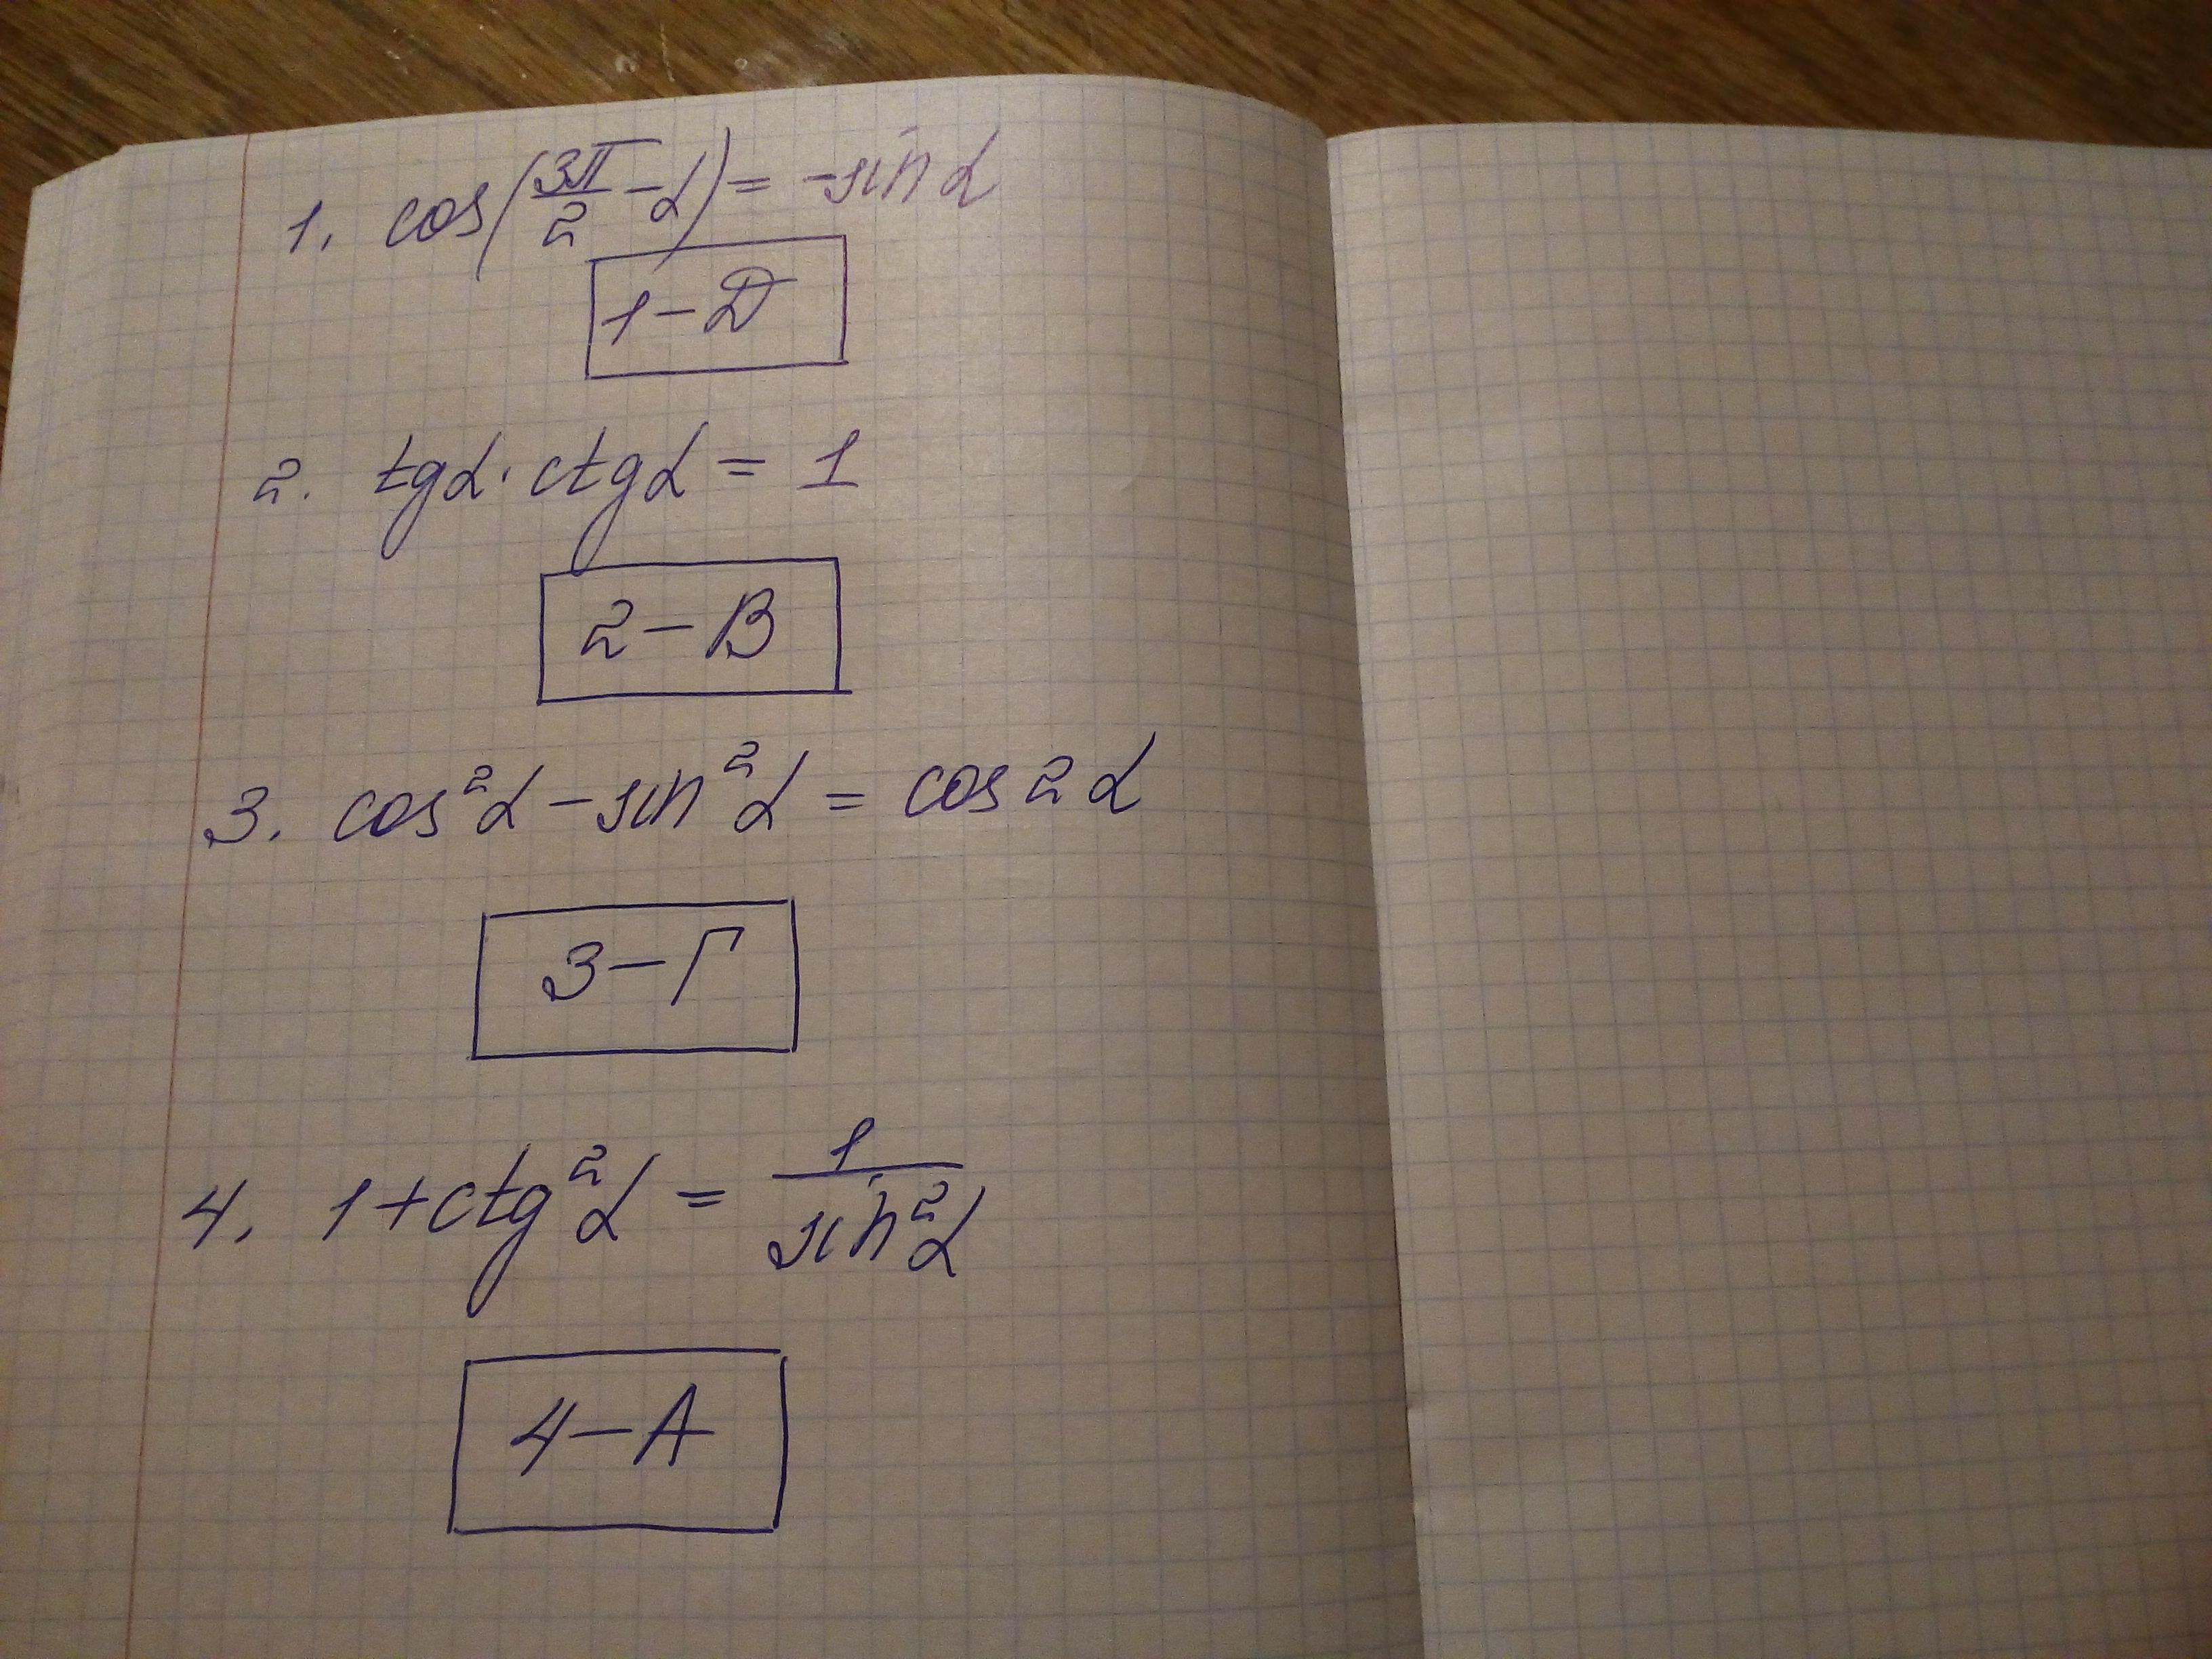 1. cos(3π/2 - α) = -sin α
1 - Д
2. tgα · ctgα = 1
2 - В
3. cos²α - sin²α = cos 2α
3 - Г
4. 1 + ctg²α = 1/sin²α
4 - А